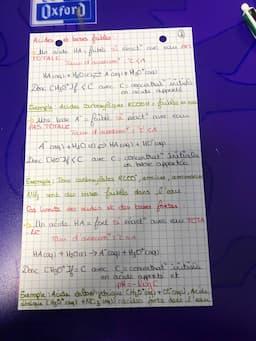 OXFORD
Acides et bases faibles
→ Un acide HA = faible si réact° avec eau PAS
TOTALE
Taux d'avancem^t τ < 1
HA(aq) + H₂O(l) ⇌ A⁻(aq) + H₃O⁺(aq)
Donc [H₃O⁺]f < C avec C = concentrat° initiale
en acide apporté
Exemple : Acides carboxyliques RCOOH = faibles
→ Une base A⁻ = faible si réact° avec eau
PAS TOTALE
Taux d'avancem^t τ < 1
A⁻(aq) + H₂O(l) ⇌ HA(aq) + HO⁻(aq)
Donc [HO⁻]f < C avec C = concentrat° initiale
en base apportée
Exemple : Ions carboxylates RCOO⁻, amines, ammoniac
NH₃ sont des bases faibles dans l'eau
Cas limite des acides et des bases fortes
→ Un acide HA = fort si réact° avec eau TOTA
-LE
Taux d'avancem^t τ = 1
HA(aq) + H₂O(l) → A⁻(aq) + H₃O⁺(aq)
Donc [H₃O⁺]f = C avec C = concentrat° initiale
en acide apporté et
pH = -log C
Exemple : Acide chlorhydrique (H₃O⁺(aq) + Cl⁻(aq)), Acide
nitrique (H₃O⁺(aq) + NO₃⁻(aq)) = acides forts dans l'eau